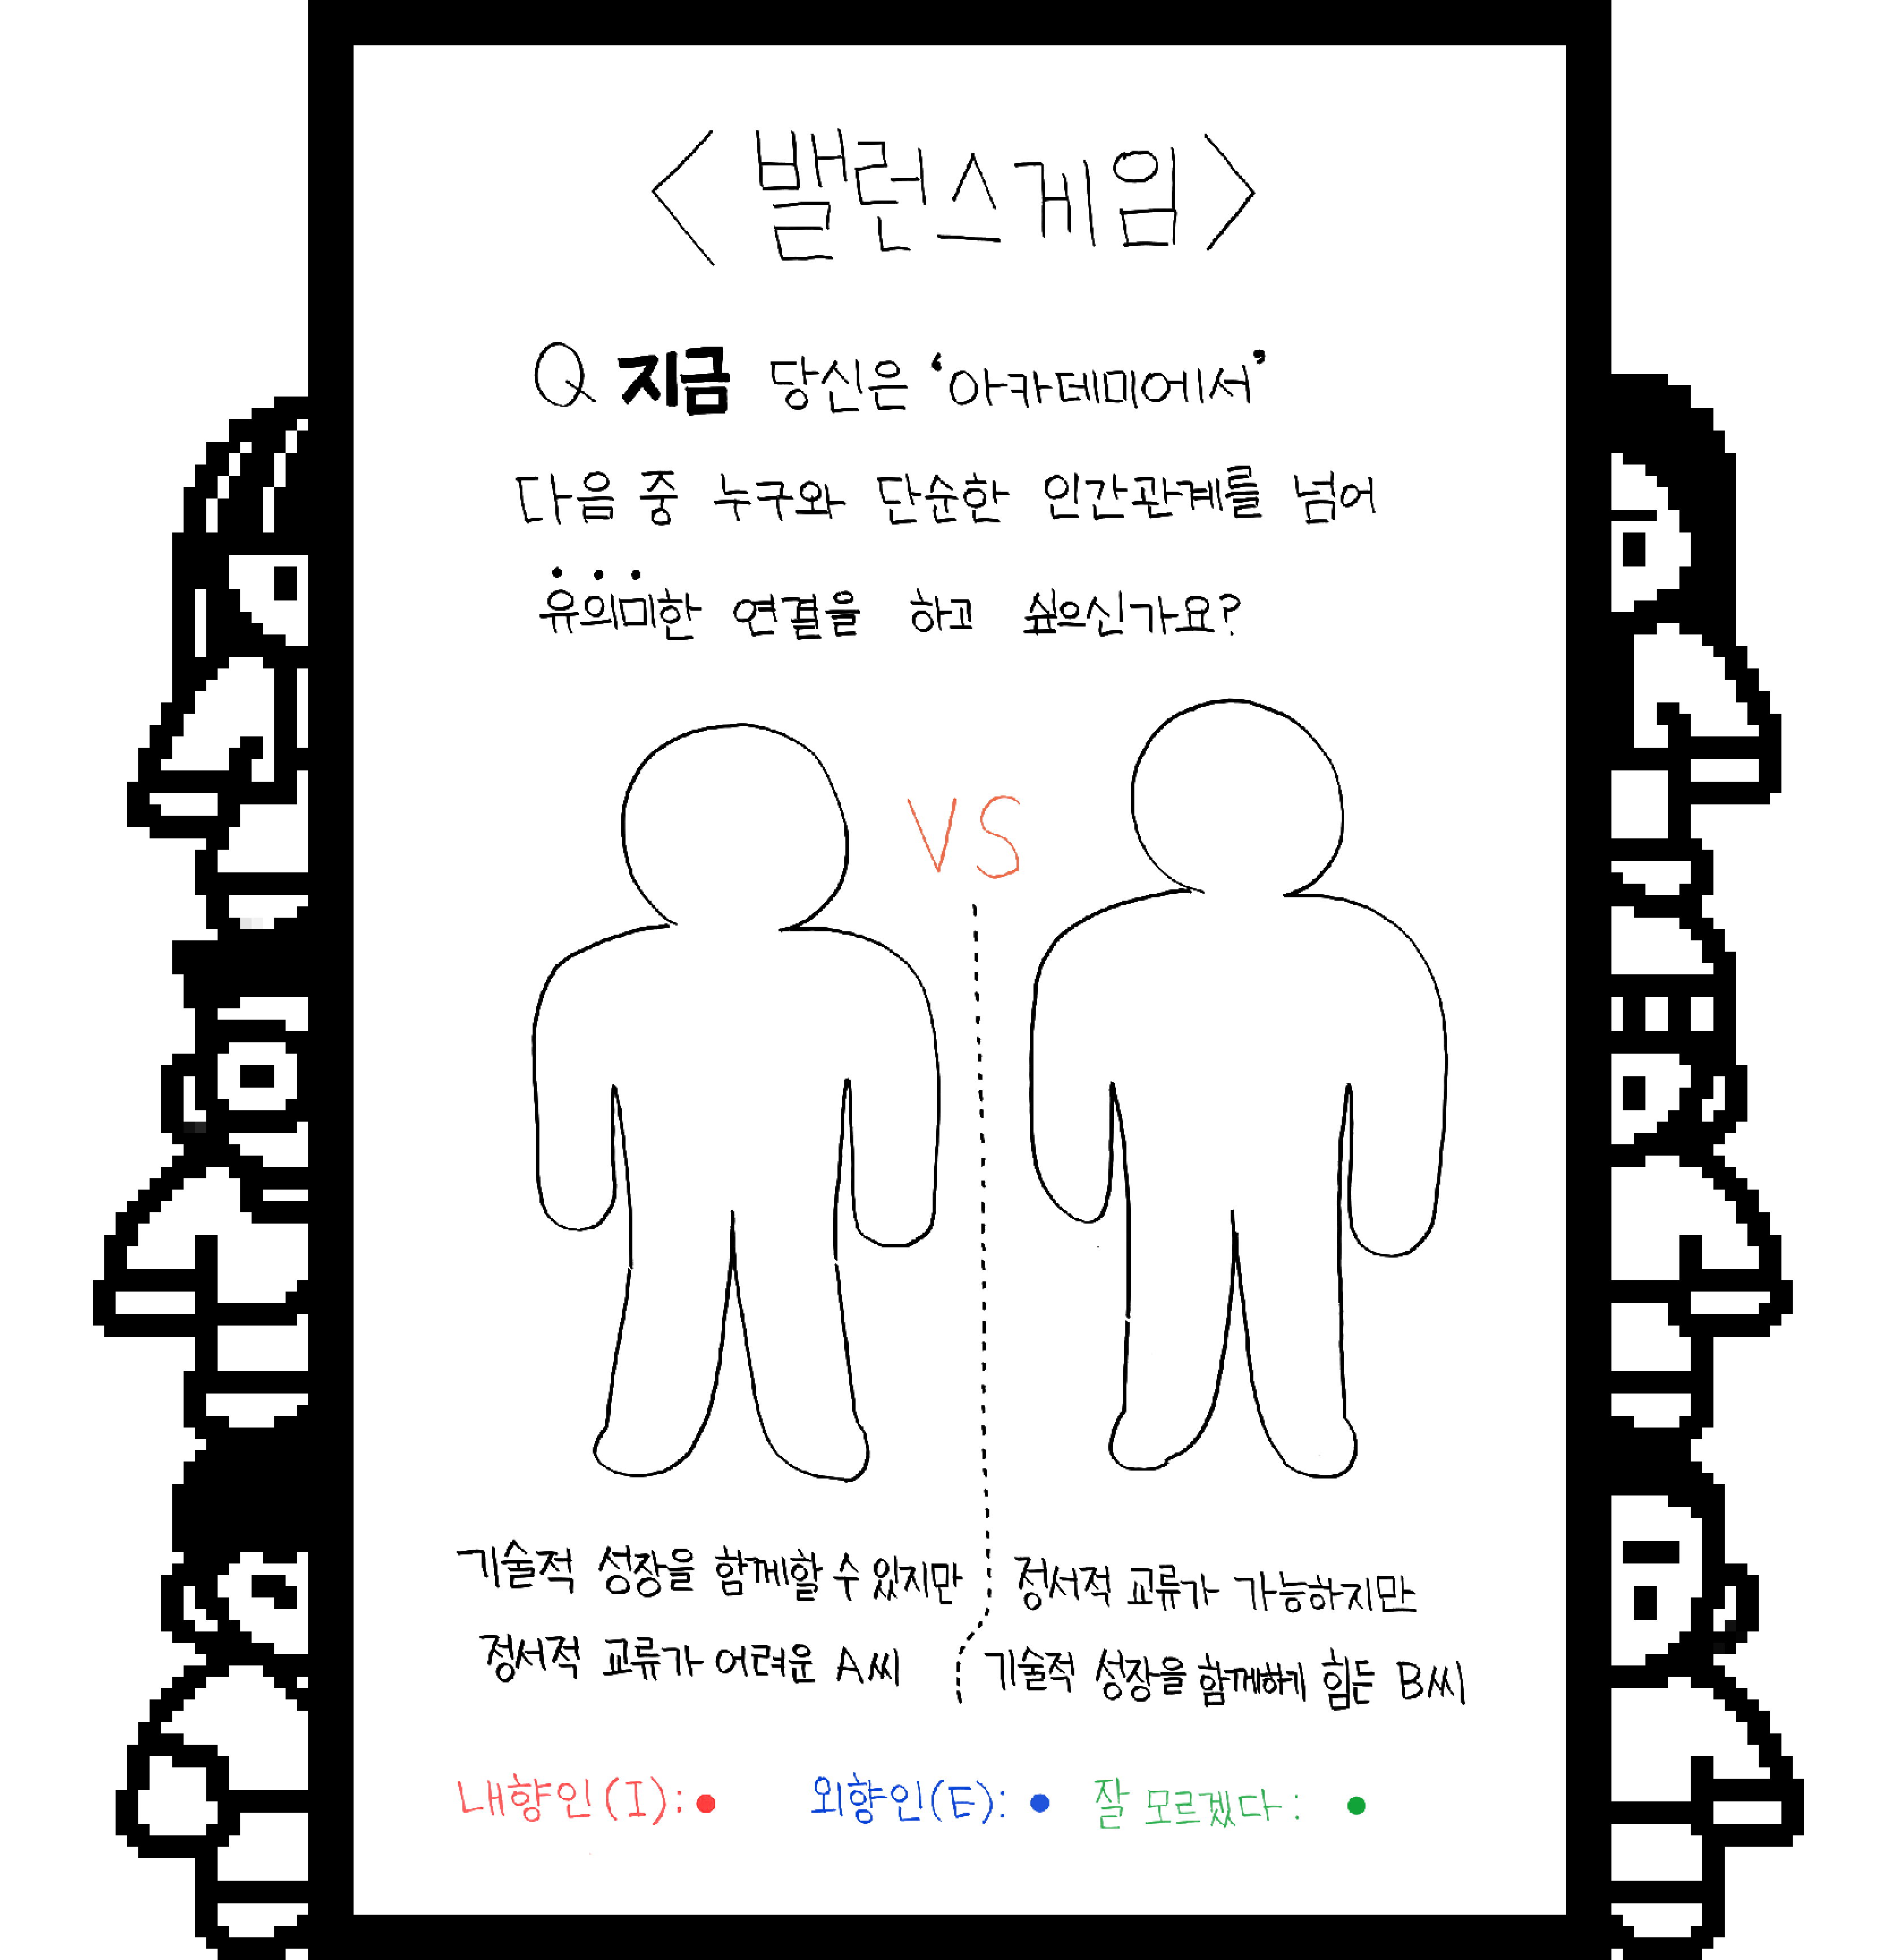 <밸런스게임>
Q 지금 당신은 '아카데미에서'
다음 중 누구와 단순한 인간관계를 넘어
유의미한 연결을 하고 싶으신가요?
VS
기술적 성장을 함께할 수 있지만
정서적 교류가 어려운 A씨
정서적 교류가 가능하지만
기술적 성장을 함께하기 힘든 B씨
내향인(I): 외향인(E): 잘 모르겠다: